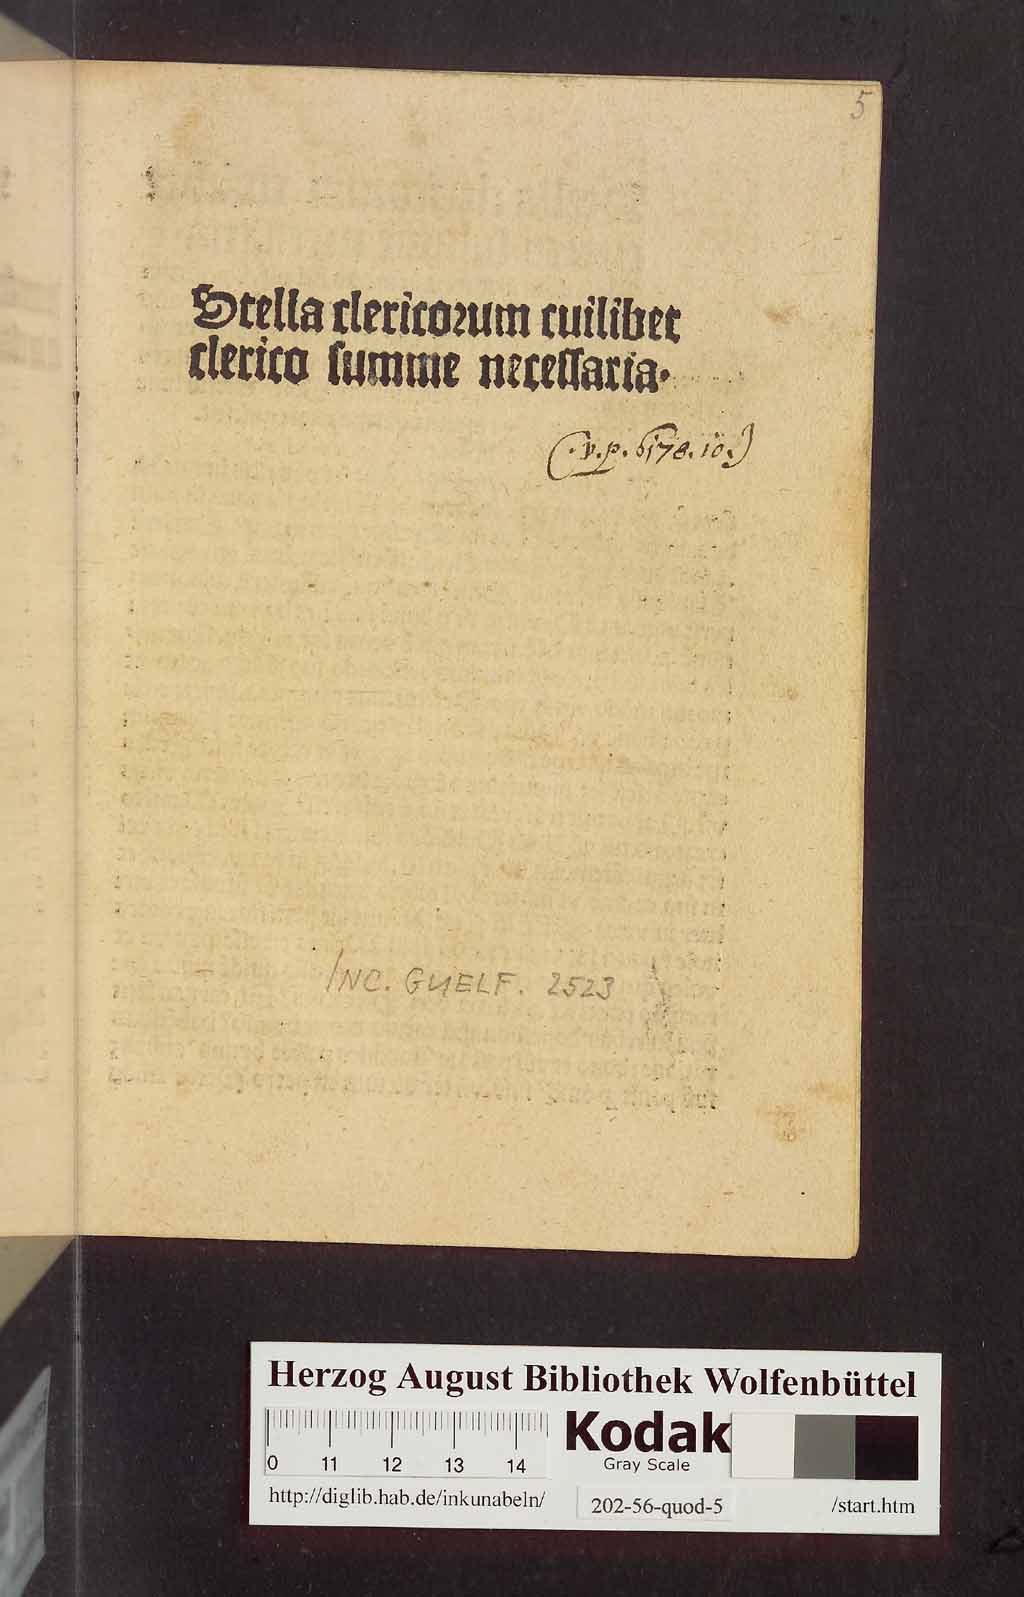 5
Stella clericoꝛum cuilibet
clerico ſumme neceſſaria.
(.v.p. 6178.10.)
INC. GUELF. 2523
Herzog August Bibliothek Wolfenbüttel
0 11 12 13 14
Kodak
Gray Scale
http://diglib.hab.de/inkunabeln/ 202-56-quod-5 /start.htm